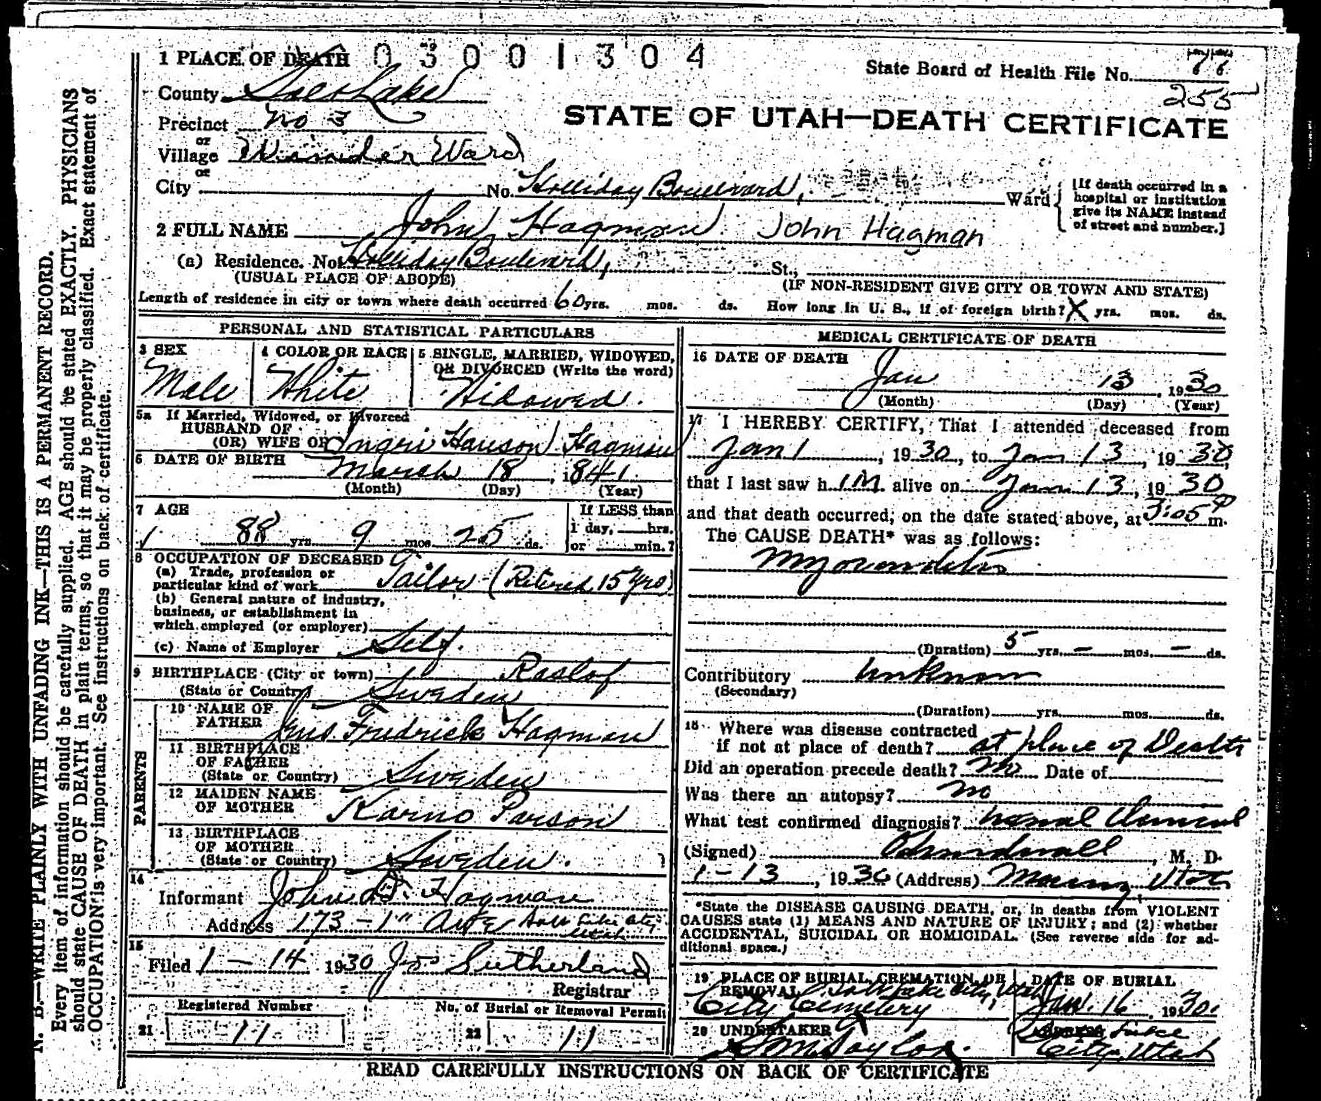 03001304
1 PLACE OF DEATH
State Board of Health File No. 77
255
County Salt Lake
STATE OF UTAH—DEATH CERTIFICATE
Precinct No 3
or
Village Winder Ward
or
City No. Holliday Boulevard, Ward
[If death occurred in a hospital or institution give its NAME instead of street and number.]
2 FULL NAME John Hagman John Hagman
(a) Residence. No. Holliday Boulevard, St.,
(USUAL PLACE OF ABODE) (IF NON-RESIDENT GIVE CITY OR TOWN AND STATE)
Length of residence in city or town where death occurred 60 yrs. mos. ds. How long in U. S., if of foreign birth? X yrs. mos. ds.
PERSONAL AND STATISTICAL PARTICULARS
3 SEX
Male
4 COLOR OR RACE
White
5 SINGLE, MARRIED, WIDOWED,
OR DIVORCED (Write the word)
Widowed.
5a If Married, Widowed, or Divorced
HUSBAND OF
(OR) WIFE OF Ingri Hanson Hagman
6 DATE OF BIRTH March 18, 1841
(Month) (Day) (Year)
7 AGE
88 yrs. 9 mos. 25 ds.
If LESS than
1 day, hrs.
or min.?
8 OCCUPATION OF DECEASED
(a) Trade, profession or
particular kind of work Tailor (Retired 15 yrs)
(b) General nature of industry,
business, or establishment in
which employed (or employer)
(c) Name of Employer Self.
9 BIRTHPLACE (City or town) Raslof
(State or Country) Sweden
PARENTS
10 NAME OF
FATHER Jns Fredrick Hagman
11 BIRTHPLACE
OF FATHER
(State or Country) Sweden
12 MAIDEN NAME
OF MOTHER Karno Parson
13 BIRTHPLACE
OF MOTHER
(State or Country) Sweden.
14
Informant John F. Hagman
Address 173 - 1st Ave Salt Lake City Utah
15
Filed 1 - 14 1930 Jos Sutherland
Registrar
Registered Number
21 11
No. of Burial or Removal Permit
22 11
MEDICAL CERTIFICATE OF DEATH
16 DATE OF DEATH
Jan 13, 1930
(Month) (Day) (Year)
17 I HEREBY CERTIFY, That I attended deceased from
Jan 1, 1930, to Jan 13, 1930
that I last saw h im alive on Jan 13, 1930
and that death occurred, on the date stated above, at 3:05 P m.
The CAUSE DEATH* was as follows:
Myocarditis
(Duration) 5 yrs. - mos. - ds.
Contributory unknown
(Secondary)
(Duration) yrs. mos. ds.
18 Where was disease contracted
if not at place of death? at place of Death
Did an operation precede death? no Date of
Was there an autopsy? no
What test confirmed diagnosis?
(Signed) M. D.
1 - 13, 1930 (Address) Murray Utah
*State the DISEASE CAUSING DEATH, or, in deaths from VIOLENT
CAUSES state (1) MEANS AND NATURE OF INJURY; and (2) whether
ACCIDENTAL, SUICIDAL OR HOMICIDAL. (See reverse side for ad-
ditional space.)
19 PLACE OF BURIAL, CREMATION, OR
REMOVAL Salt Lake City, Utah
City Cemetery
DATE OF BURIAL
Jan. 16 1930.
20 UNDERTAKER
S. M. Taylor
ADDRESS Lake
City, Utah
READ CAREFULLY INSTRUCTIONS ON BACK OF CERTIFICATE
N. B.—WRITE PLAINLY WITH UNFADING INK—THIS IS A PERMANENT RECORD.
Every item of information should be carefully supplied. AGE should be stated EXACTLY. PHYSICIANS
should state CAUSE OF DEATH in plain terms, so that it may be properly classified. Exact statement of
OCCUPATION is very important. See Instructions on back of certificate.